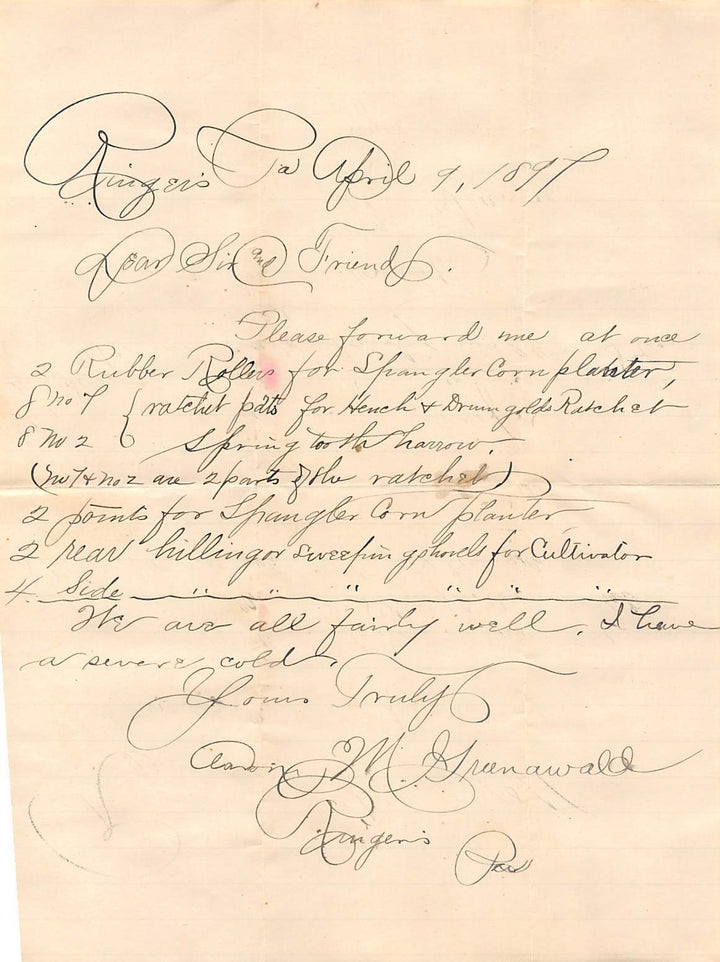 Ringers Pa April 9, 1897
Dear Sir and Friend.
Please forward me at once
2 Rubber Rollers for Spangler Corn planter,
8 no 1 { ratchet pats for Hench & Drumgolds Ratchet
8 no 2 Spring tooth harrow.
(no 1 & no 2 are 2 parts of the ratchet)
2 points for Spangler Corn planter
2 rear hilling or sweeping shovels for Cultivator
4 Side " " " " " "
We are all fairly well. I have
a severe cold.
Yours Truly
M. Greenawald
Ringers
Pa